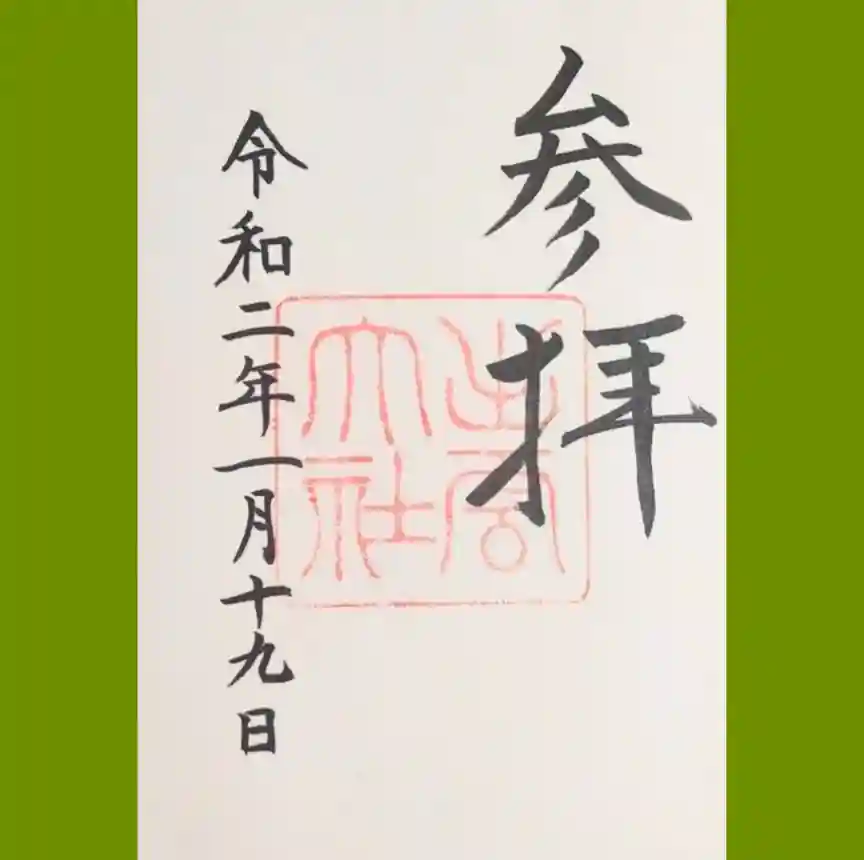 参拝
出雲
大社
令和二年一月十九日